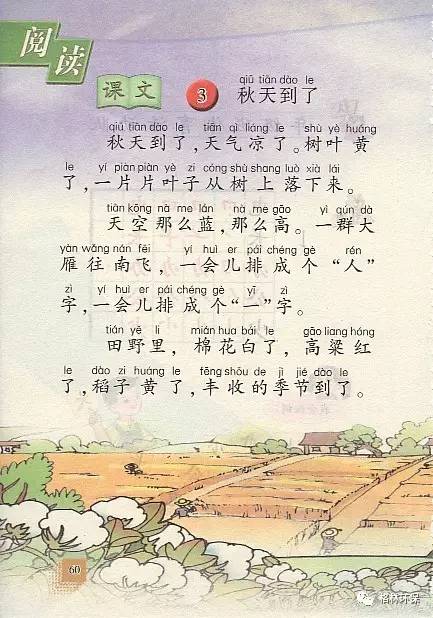 阅读
课文 3 秋天到了
qiū tiān dào le
qiū tiān dào le tiān qì liáng le shù yè huáng
秋天到了,天气凉了。树叶黄
le yí piàn piàn yè zi cóng shù shang luò xià lái
了,一片片叶子从树上落下来。
tiān kōng nà me lán nà me gāo yì qún dà
天空那么蓝,那么高。一群大
yàn wǎng nán fēi yí huì er pái chéng gè rén
雁往南飞,一会儿排成个“人”
zì yí huì er pái chéng gè yī zì
字,一会儿排成个“一”字。
tián yě li mián hua bái le gāo liang hóng
田野里,棉花白了,高粱红
le dào zi huáng le fēng shōu de jì jié dào le
了,稻子黄了,丰收的季节到了。
60
格林环保